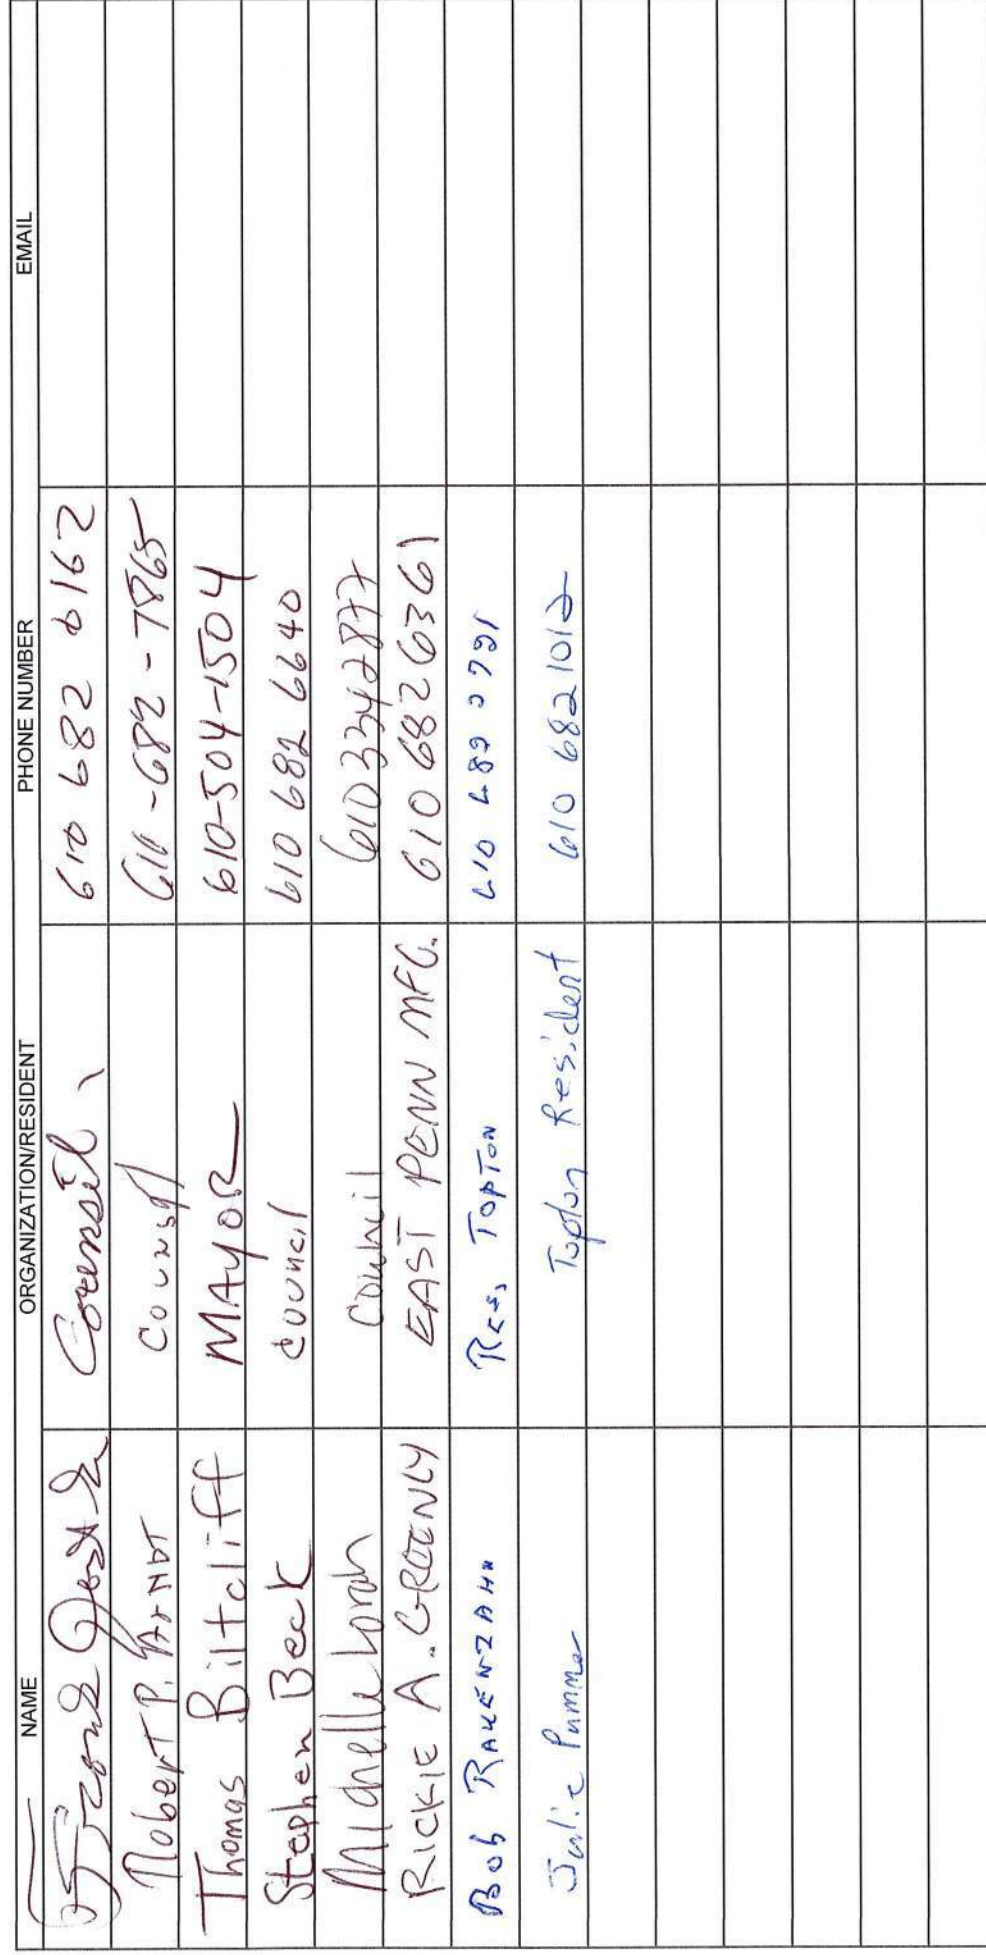 NAME ORGANIZATION/RESIDENT PHONE NUMBER EMAIL
610 682 6162
Robert P. Arndt 610-682-7865
Thomas Biltcliff MAYOR 610-504-1504
Stephen Beck council 610 682 6640
Michelle Lorah Council 6103342877
RICKIE A. GREENLY EAST PENN MFG. 610 682 6361
Bob RAUENZAHN Res. TOPTON 610 682 2721
Julie Pummer Topton Resident 610 682 1012